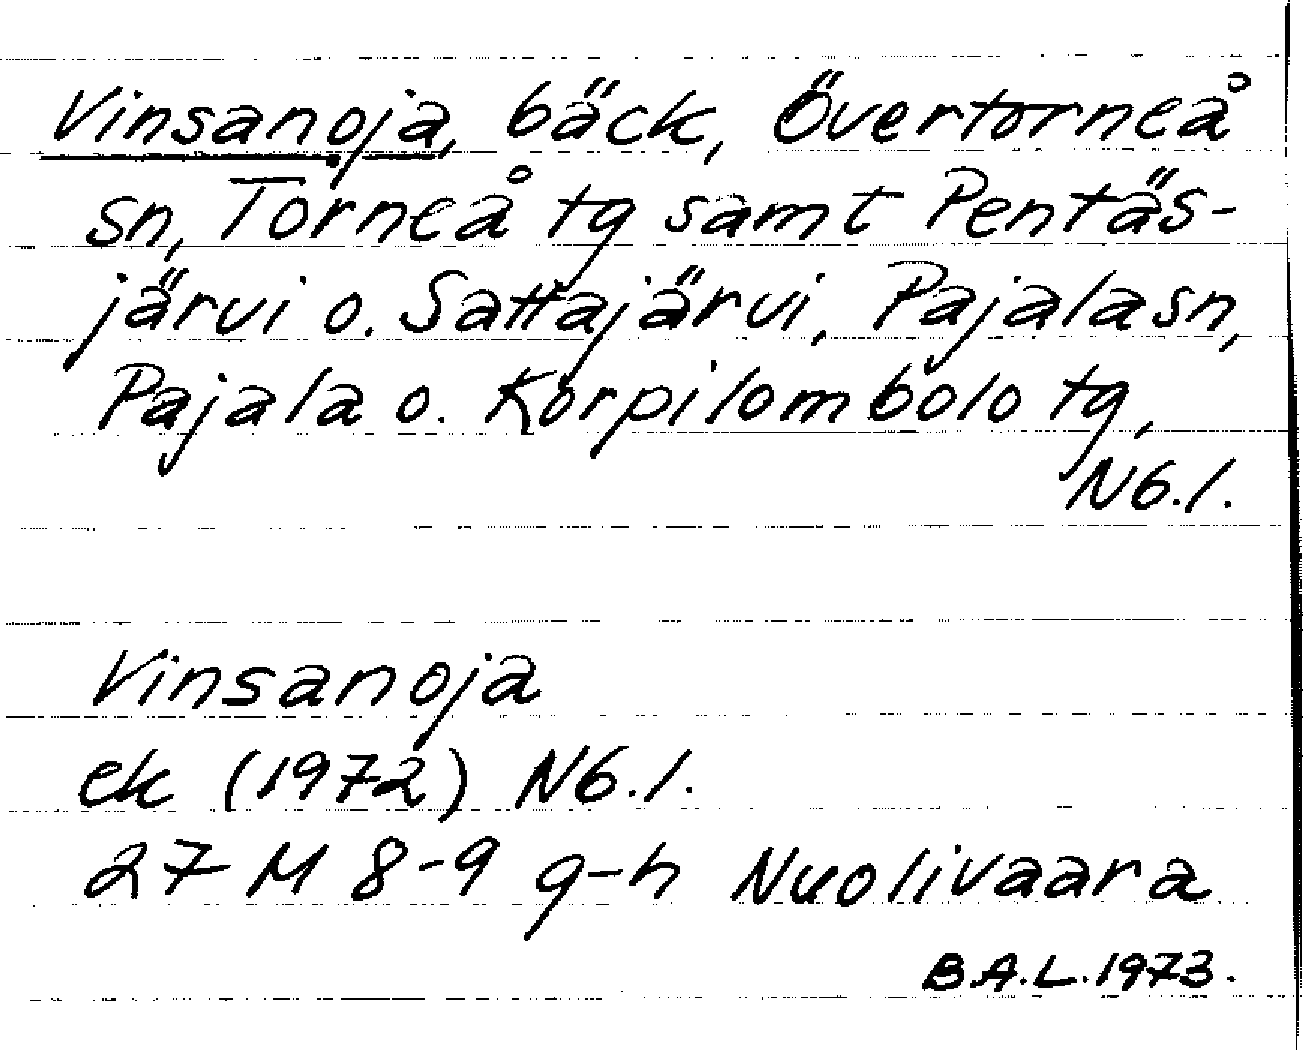 Vinsanoja, bäck, Övertorneå
sn, Torneå tg samt Pentäs-
järvi o. Sattajärvi, Pajala sn,
Pajala o. Korpilombolo tg,
Nb.l.
Vinsanoja
ek (1972) Nb.l.
27 M 8-9 g-h Nuolivaara
B.A.L. 1973.